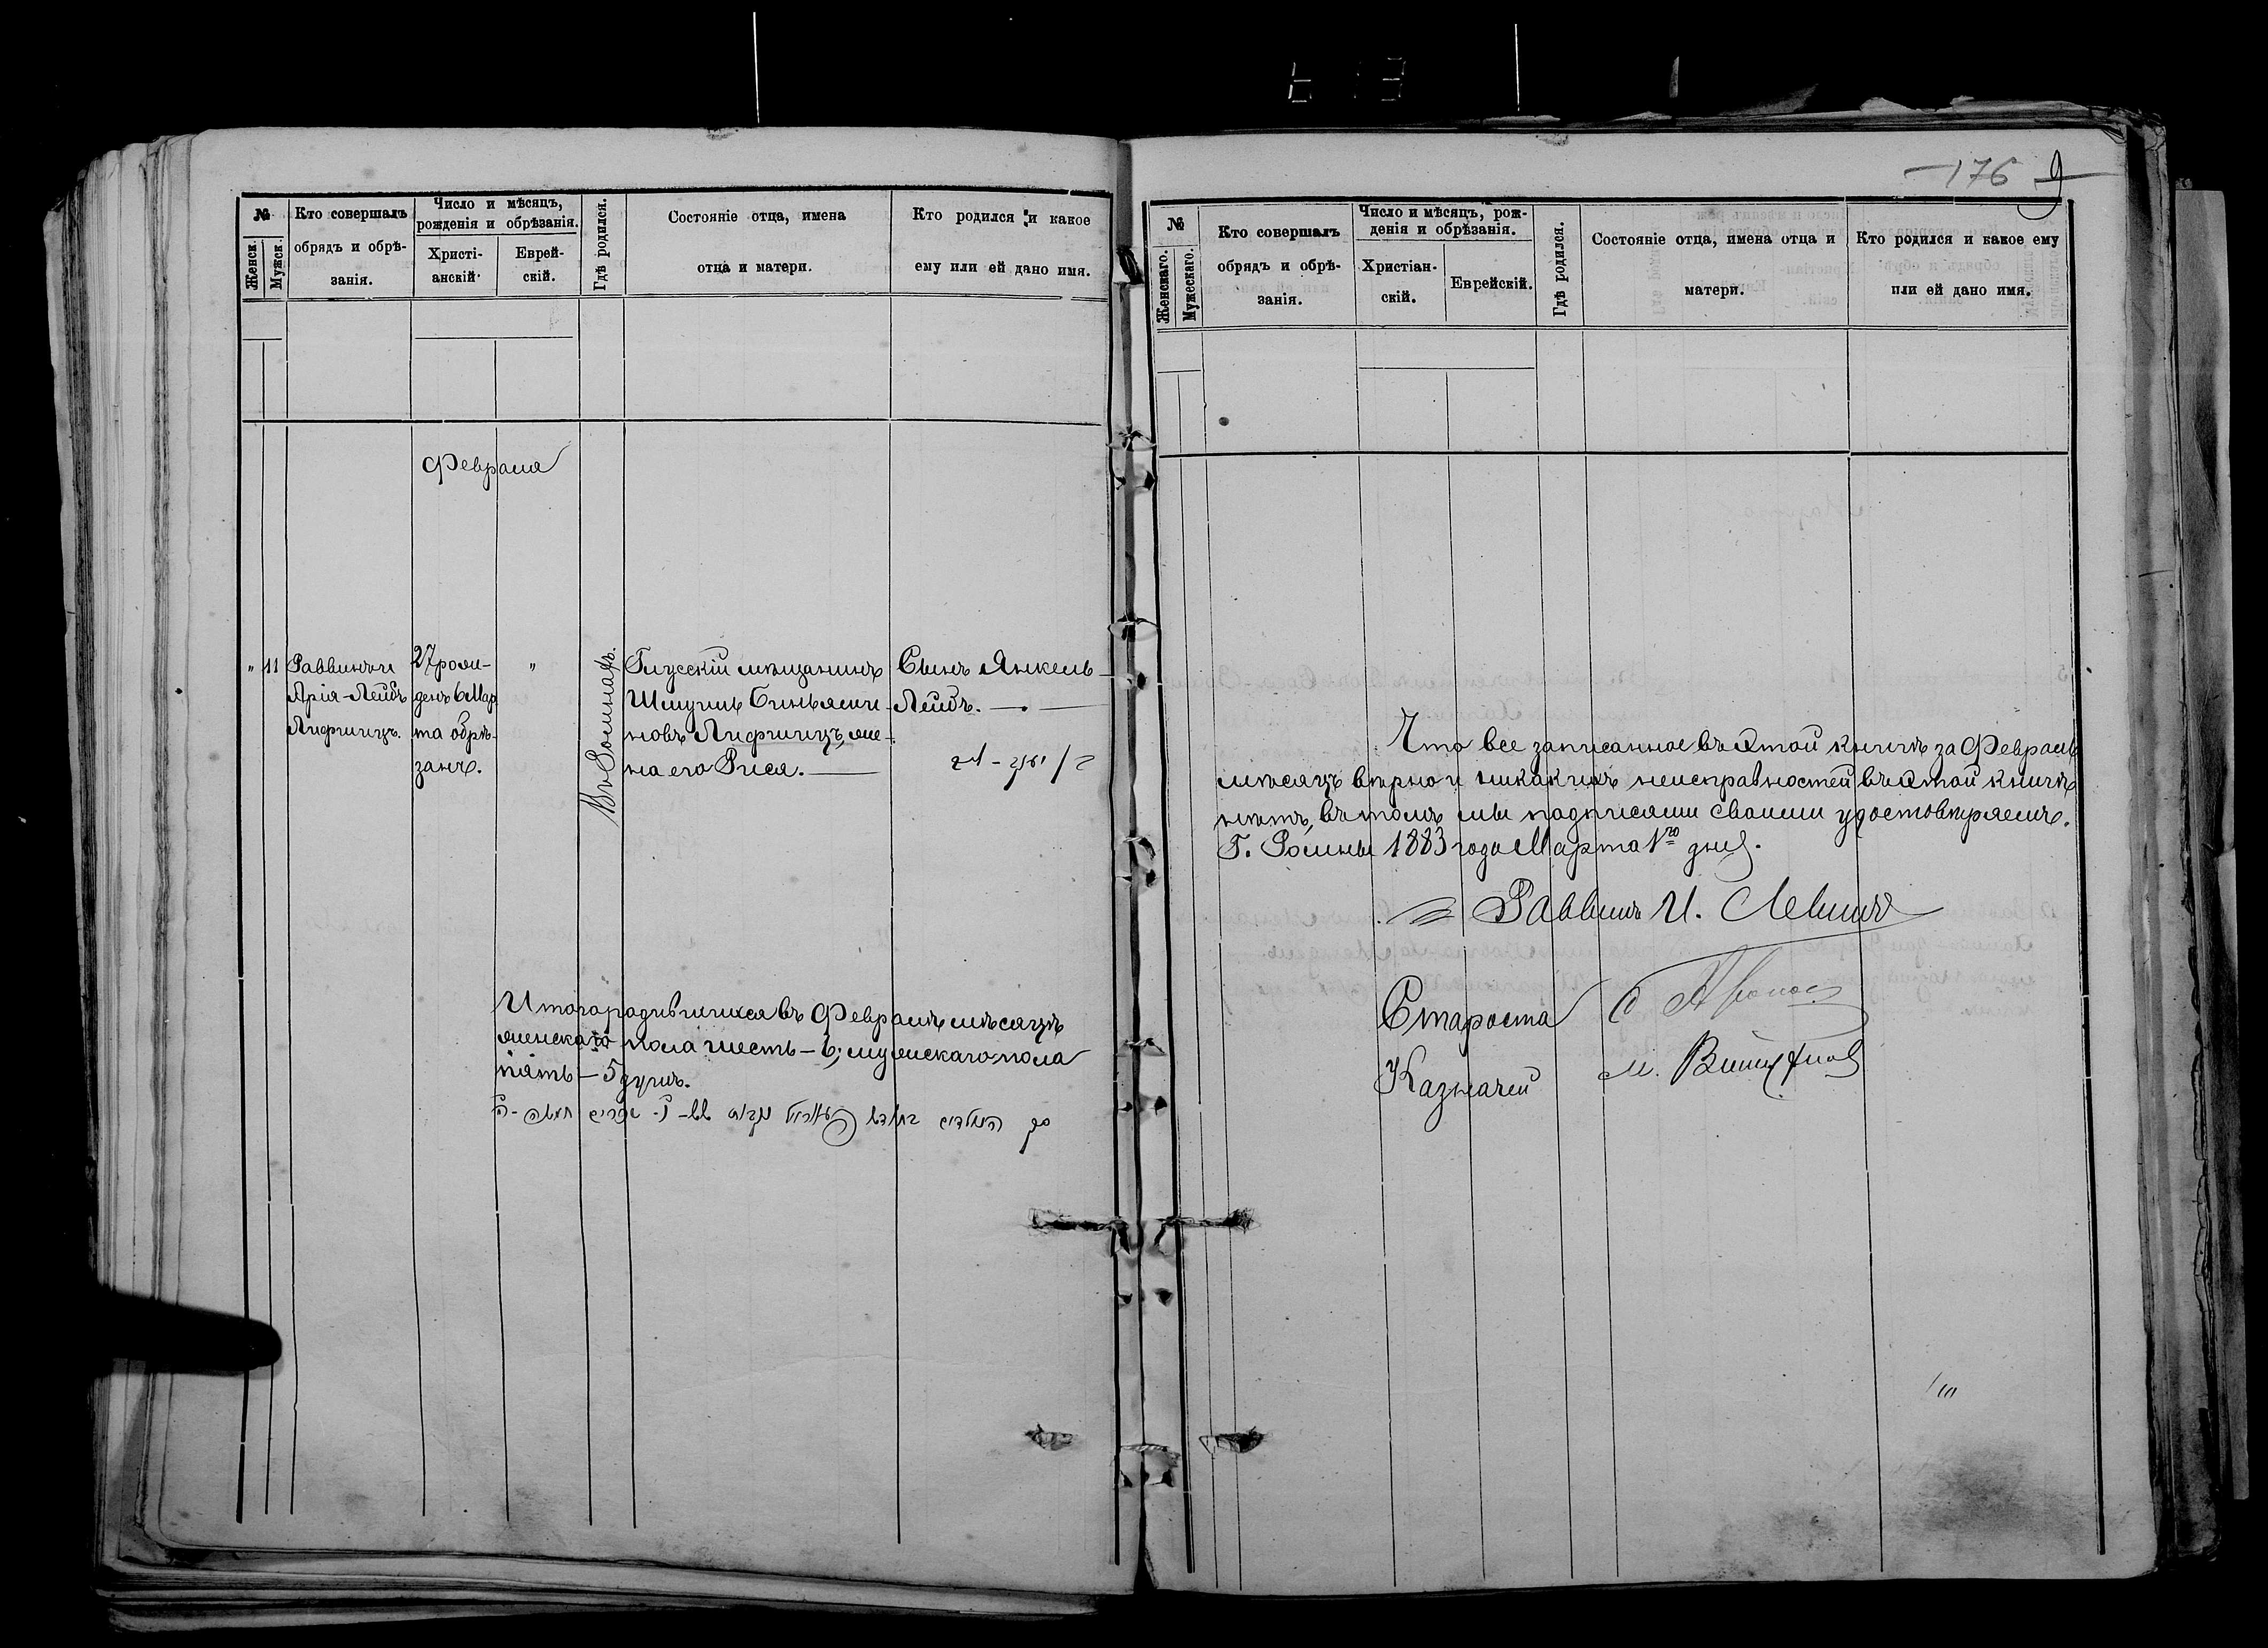 №
Женск.
Мужск.
Кто совершалъ
обрядъ и обрѣ-
занія.
Число и мѣсяцъ,
рожденія и обрѣзанія.
Христі-
анскій
Еврей-
скій.
Гдѣ родился.
Состояніе отца, имена
отца и матери.
Кто родился и какое
ему или ей дано имя.
Февраля
" 11
Раввинъ и
Арія-Лейбъ
Лифшицъ.
27 рож-
денъ 6 Мар
та обрѣ-
занъ.
"
Въ Ромнахъ.
Глусскій мѣщанинъ
Шмуилъ Биньями-
новъ Лифшицъ, же-
на его Рися.
Сынъ Янкель
Лейбъ.
Итого родившихся въ Февралѣ мѣсяцѣ
женскаго пола шесть - 6; мужскаго пола
пять - 5 душъ.
176 9
№
Женскаго.
Мужескаго.
Кто совершалъ
обрядъ и обрѣ-
занія.
Число и мѣсяцъ, рож-
денія и обрѣзанія.
Христіан-
скій.
Еврейскій.
Гдѣ родился.
Состояніе отца, имена отца и
матери.
Кто родился и какое ему
или ей дано имя.
Что все записанное въ этой книгѣ за Февраль
мѣсяцъ вѣрно и никакихъ неисправностей въ этой книгѣ
нѣтъ, въ томъ мы подписями своими удостовѣряемъ.
Г. Ромны 1883 года Марта 1го дня.
Раввинъ И. Левинъ
Староста
Казначей М.